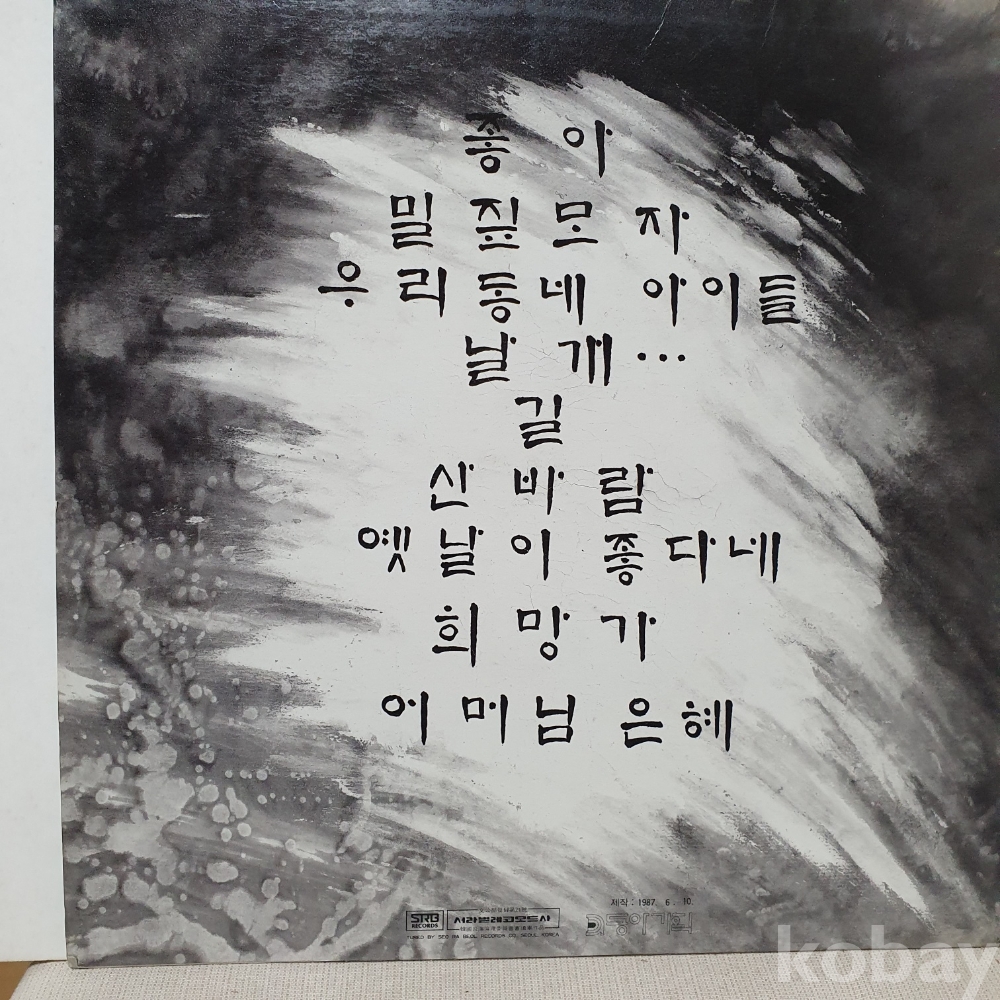 좋아
밀짚모자
우리동네 아이들
날개...
길
신바람
옛날이 좋다네
희망가
어머님 은혜
제작 : 1987. 6. 10.
SRB
RECORDS
서라벌레코오드사
동아기획
TUNED BY SEO RA BEOL RECORDS CO. SEOUL, KOREA
kobay